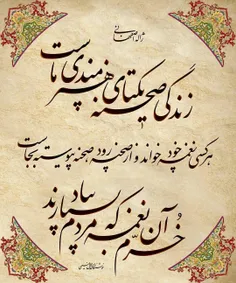 ژاله اصفهانی
زندگی صحنه یکتای هنرمندی ماست
هر کسی نغمه خود خواند و از صحنه رود صحنه پیوسته بجاست
خرم آن نغمه که مردم بسپارند بیاد